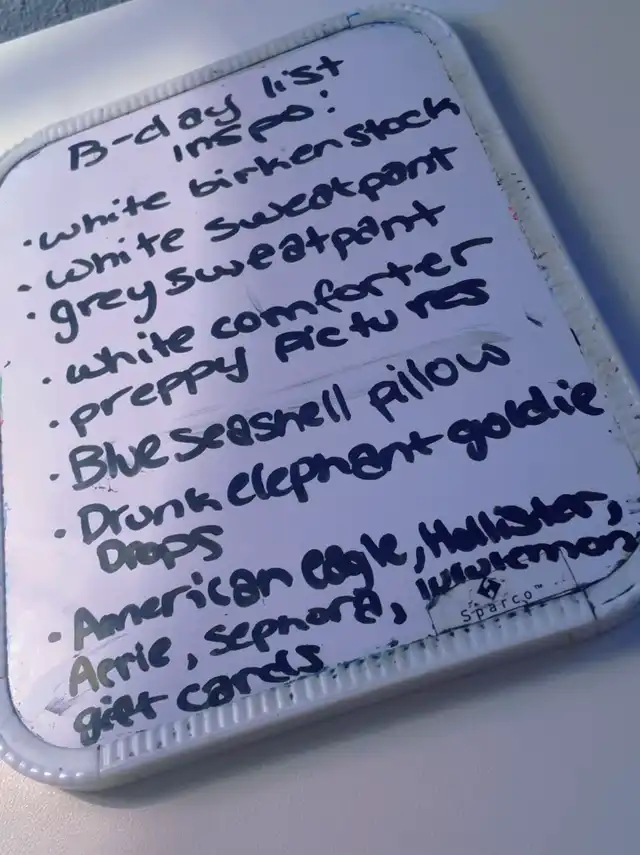 B-day list
inspo:
• white birkenstock
• white sweatpant
• grey sweatpant
• white comforter
• preppy pictures
• Blue seashell pillow
• Drunk elephant goldie
Drops
• American eagle, Hollister,
Aerie, sephora, lululemon
gift cards
Sparco™